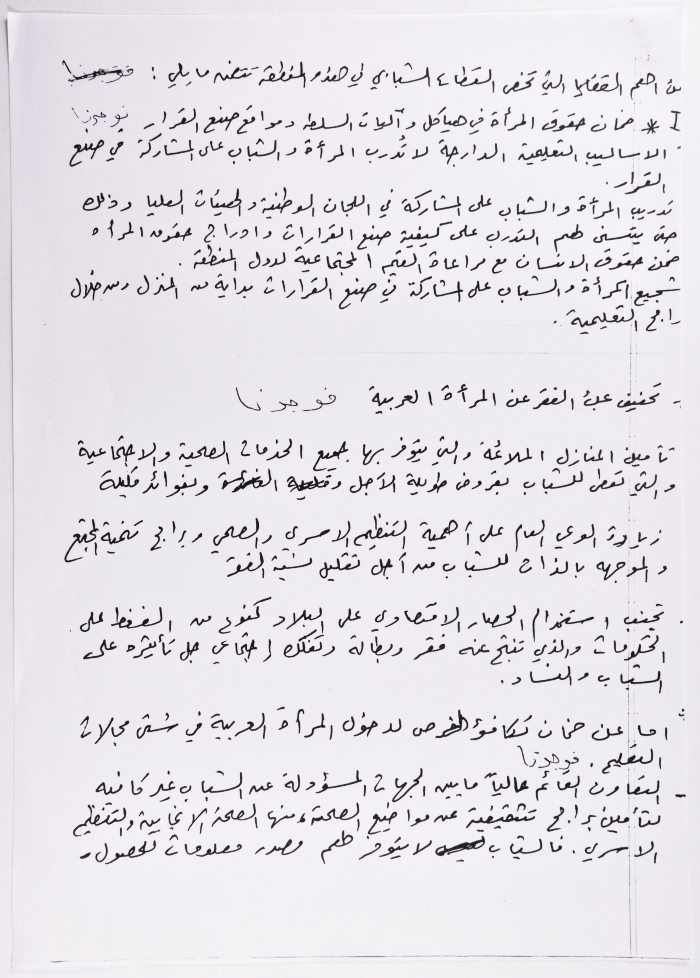 من اهم القضايا التي تخص القطاع الشبابي في هذه المنطقة تتضمن ما يلي :
I * ضمان حقوق المرأة في هياكل وآليات السلطه ومواقع صنع القرار فوجدنا
الاساليب التعليمية الدارجة لا تُدرب المرأة والشباب على المشاركة في صنع
القرار .
تدريب المرأة والشباب على المشاركة في اللجان الوطنية والهيئات العليا وذلك
حتى يتسنى لهم التدرب على كيفية صنع القرارات وادراج حقوق المرأه
ضمن حقوق الانسان مع مراعاة القيم المجتماعية لدول المنطقة .
شجيع المرأة والشباب على المشاركة في صنع القرارات بداية من المنزل ومن خلال
رامج التعليمية .
- تخفيف عبئ الفقر عن المرأة العربية فوجدنا
تأمين المنازل الملائمة والتي يتوفر بها جميع الخدمات الصحية والاجتماعية
والتي تعطى للشباب بقروض طويلة الأجل وبفوائد قليلة
زيادة الوعي العام على أهمية التنظيم الاسري والصحي وبرامج تنمية المجتمع
والموجهه بالذات للشباب من أجل تقليل نسبة الفقر
. تجنب استخدام الحصار الاقتصادي على البلاد كنوع من الضغط على
الحكومات والذي تنتج عنه فقر وبطالة وتفكك إجتماعي جل تأثيره على
الشباب والنساء .
اما عن ضمان تكافؤ الفرص لدخول المرأة العربية في شتى مجالات
التعليم . فوجدنا
- التعاون القائم حالياً ما بين الجهات المسؤولة عن الشباب غير كافيه
لتأمين برامج تثقيفية عن مواضيع الصحة ومنها الصحة الانجابية والتنظيم
الاسري . فالشباب لا يتوفر لهم مصدر معلومات للحصول